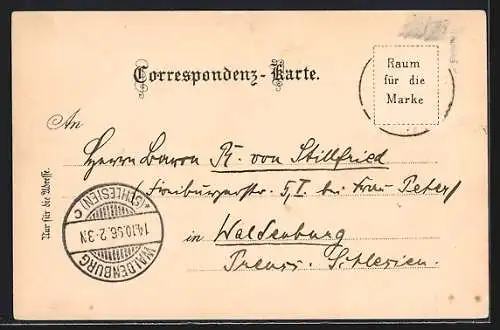 Correspondenz-Karte.
Raum
für die
Marke
An
Herrn Baron R. von Stillfried
(Freiburgerstr. 5, I bei Frau Peter)
in Waldenburg
Preuss. Schlesien.
Nur für die Adresse.
WALDENBURG
14.10.96. 2-3N
(SCHLESIEN) c